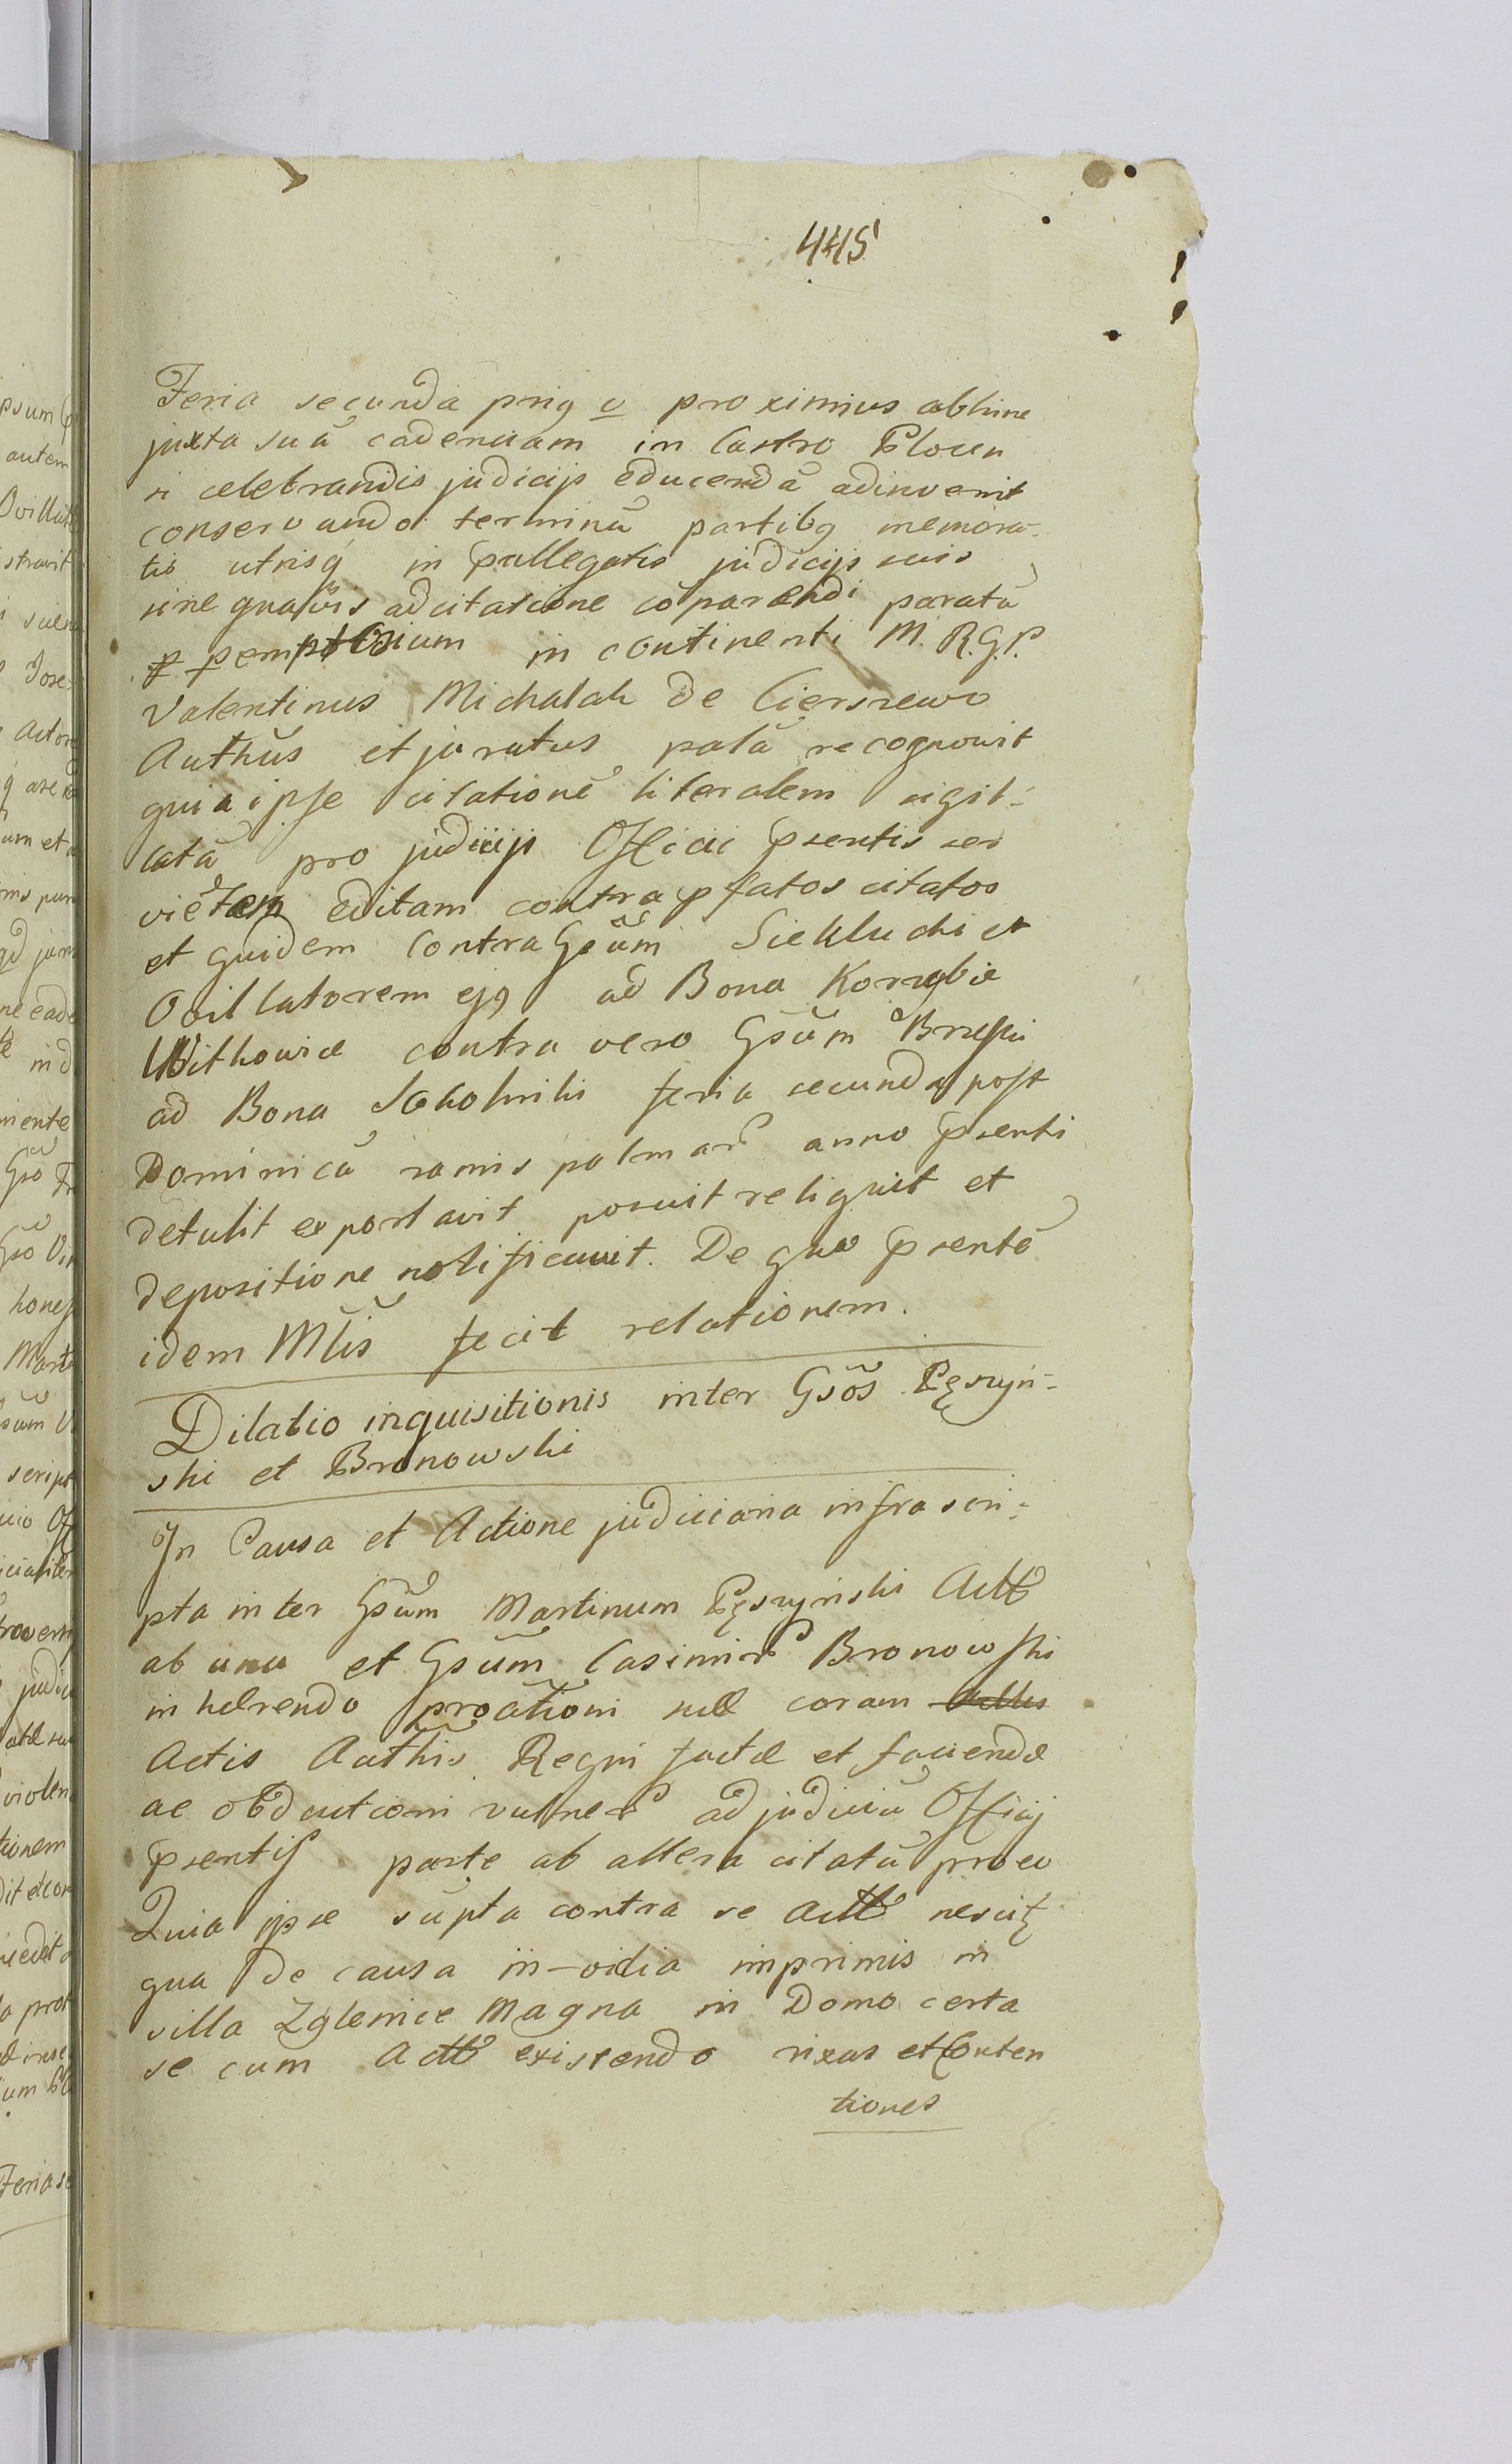 445
Feria secunda prig v proximius abhinc
juxta suā cadenciam in Castro Plocen
si celebrandis judicijs educendā adinvenit
conservando terminū partibq memora-
tis utrisq in prallegatis judicijs suis
sine quavis adcitatione cōparendi paratū
pemptorium in continenti M. R. G. P.
Valentinus Michalak de Cierszewo
Authūs et juratus palā recognovit
quia ipse citationē literalem sigil-
latā pro judicijs Officii psentis ser
viētem editam contra pfatos citatos
et quidem contra Gsūm Siekluchi et
Ovillatorem ejq ad Bona Korzybie
Withowice contra vero Gsūm Brzeski
ad Bona Sokolniki feria secunda post
Dominicā ramis palmar anno psenti
detulit exportavit posuit reliquit et
depositione notificavit. De quo psentē
idem Mlis fecit relationem.
Dilatio inquisitionis inter Gsōs Pęszyń-
ski et Bronowski
In Causa et Actione judiciaria infra scri-
pta inter Gsūm Martinum Pęszyński Actt
ab una et Gsūm Casimir Bronowski
inhærendo proātioni suæ coram
Actis Authis Regni factæ et faciendæ
ac obductioni vulner ad judiciū Officij
psentis parte ab altera citatū pro eo
Quia ipse supta contra se Actt nescitz
qua de causa in-vidia imprimis in
villa Zglenice Magna in Domo certa
se cum Actt existendo rixas et Conten
tiones